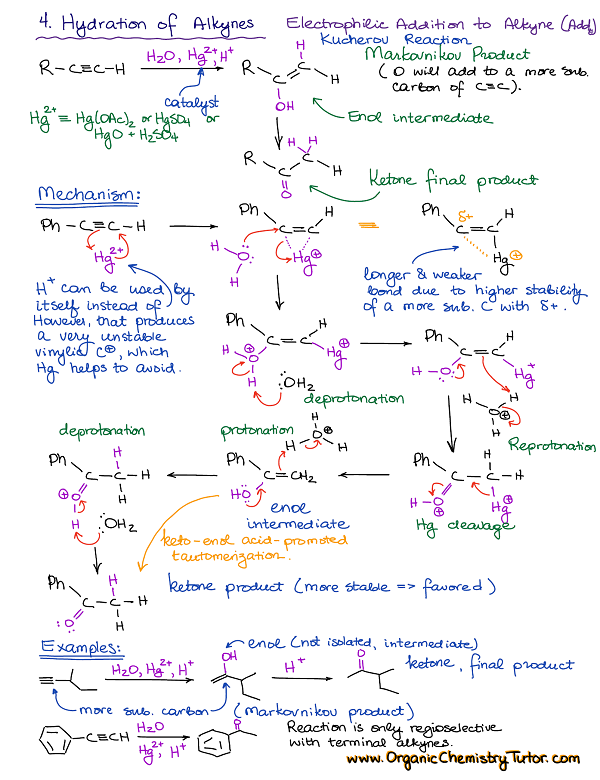 4. Hydration of Alkynes
Electrophilic Addition to Alkyne (AdE)
Kucherov Reaction
R-C≡C-H
H2O, Hg2+, H+
catalyst
Markovnikov Product
(O will add to a more sub.
carbon of C≡C).
R C=C H H OH
Hg2+ ≡ Hg(OAc)2 or HgSO4 or
HgO + H2SO4
Enol intermediate
R C C H H H O
Ketone final product
Mechanism:
Ph-C≡C-H
Hg2+
Ph C=C H Hg⊕
H O H
≡
Ph δ+ C=C H Hg⊕
longer & weaker
bond due to higher stability
of a more sub. C with δ+.
H+ can be used by
itself instead of
However, that produces
a very unstable
vinylic C⊕, which
Hg helps to avoid.
Ph C=C H Hg⊕
H-O⊕ H :OH2
deprotonation
Ph C=C H Hg+
H-O:
H H O⊕ H
Reprotonation
deprotonation
protonation
Ph C-C H H H
⊕O: H :OH2
Ph C=CH2
HO:
H H O⊕ H
enol
intermediate
Ph C-C H H
H-O⊕ Hg⊕
Hg cleavage
keto-enol acid-promoted
tautomerization.
Ph C-C H H H
:O:
ketone product (more stable => favored)
Examples:
enol (not isolated, intermediate)
H2O, Hg2+, H+
OH
H+
O
ketone, final product
more sub. carbon
(Markovnikov product)
-C≡CH
H2O
Hg2+, H+
O
Reaction is only regioselective
with terminal alkynes.
www.OrganicChemistryTutor.com